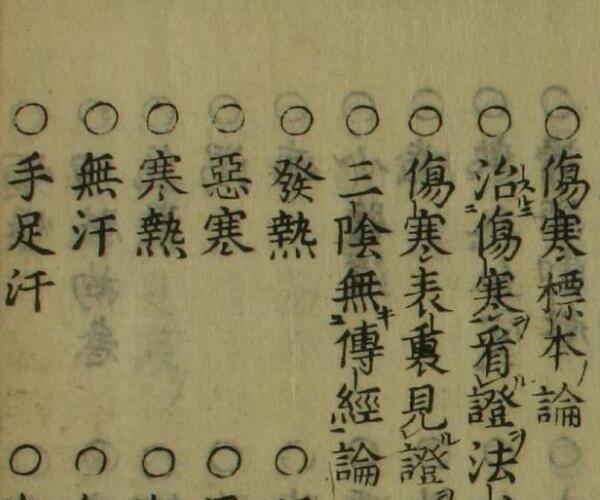 ○傷寒標本論
○治傷寒看證法
○傷寒表裏見證
○三陰無傳經論
○發熱
○惡寒
○寒熱
○無汗
○手足汗